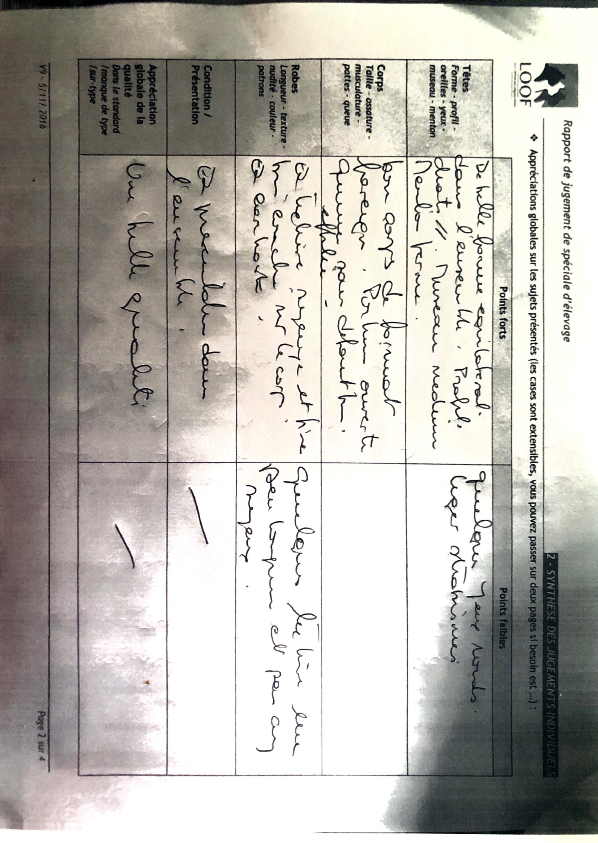 LOOF
Rapport de jugement de spéciale d'élevage
2 - SYNTHESE DES JUGEMENTS INDIVIDUELS
❖ Appréciations globales sur les sujets présentés (les cases sont extensibles, vous pouvez passer sur deux pages si besoin est ...) :
Points forts
Points faibles
Têtes
Forme - profil -
oreilles - yeux -
museau - menton
De belle forme équilatéral
dans l'ensemble. Profil
droits //. Museau medium
Menton ferme.
Quelques yeux ronds.
léger strabismes
Corps
Taille - ossature -
musculature -
pattes - queue
bon corps de format
foreign. Poitrine ouverte
queues sans défaut
effilée
Robes
Longueur - texture -
nudité - couleur -
patrons
texture soyeuse et fine
bien couchée sur le corps.
Quelques texture
peu longues et pas assez
soyeux.
Condition /
Présentation
dans
l'ensemble.
Appréciation
globale de la
qualité
Dans le standard
/ manque de type
/ sur-type
Une belle qualité
V9 - 5/11/2016
Page 2 sur 4